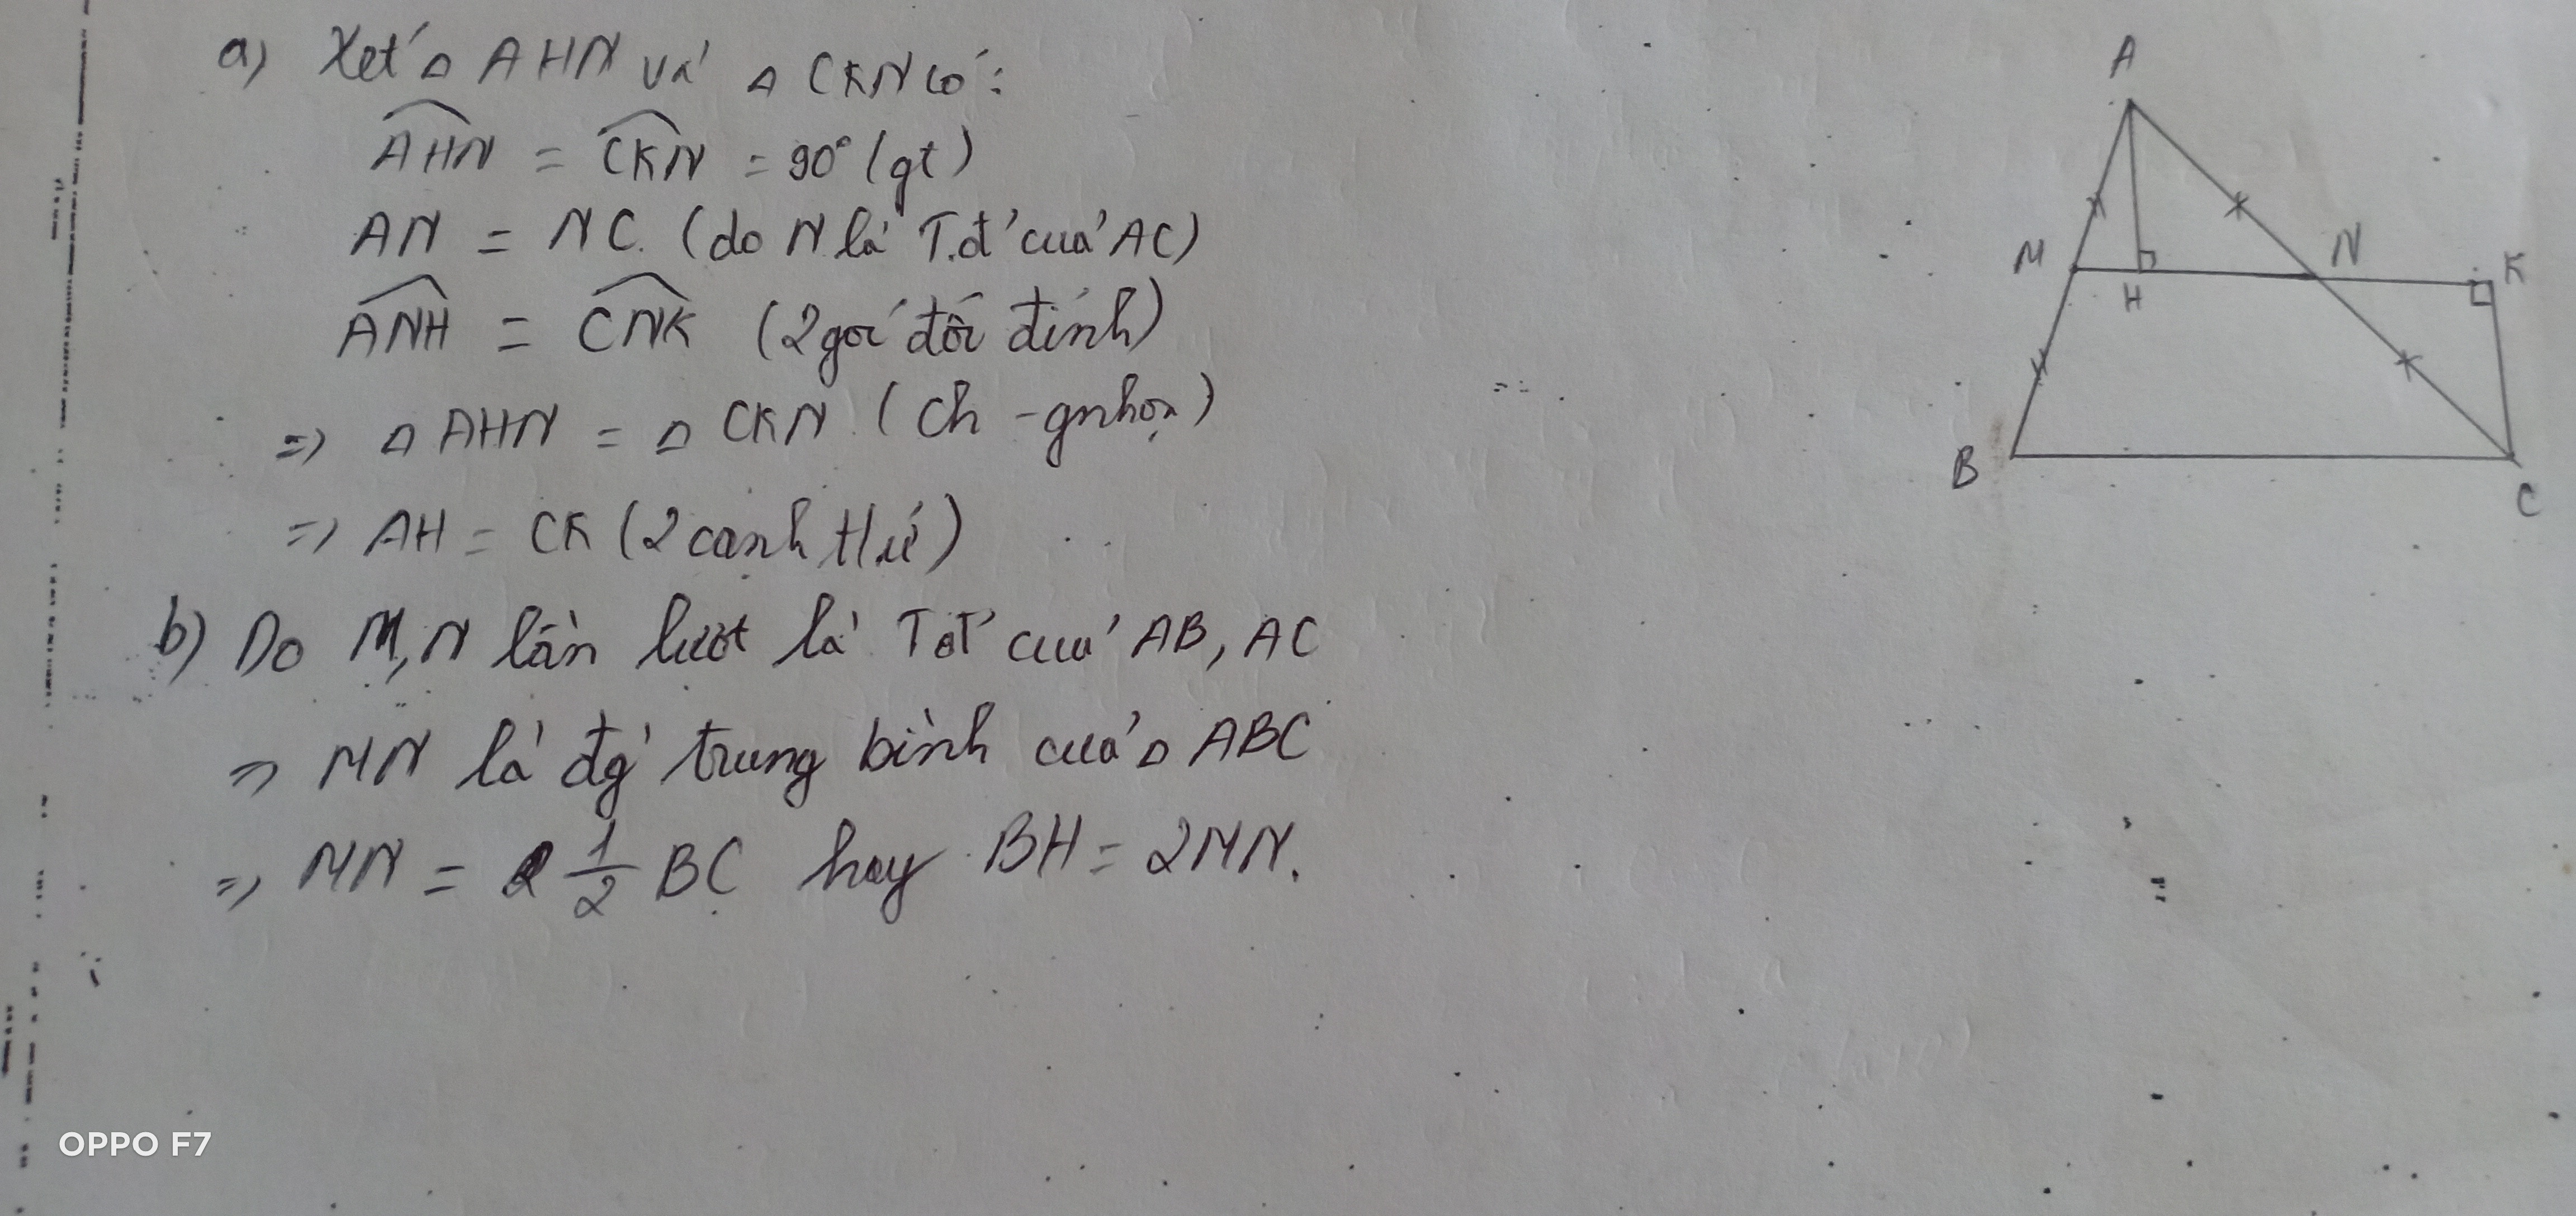 a) Xét △ AHN và △ CKN có:
AHN = CKN = 90° (gt)
AN = NC. (do N là T.đ' của AC)
ANH = CNK (2 goí đối đỉnh)
=> △ AHN = △ CKN (Ch - gnhọn)
=> AH = CK (2 cạnh tứ)
b) Do M, N lần lượt là Tđ' của AB, AC
=> MN là đg' trung bình của △ ABC
=> MN = 1/2 BC hay BH = 2MN.
A
M
N
K
H
B
C
OPPO F7